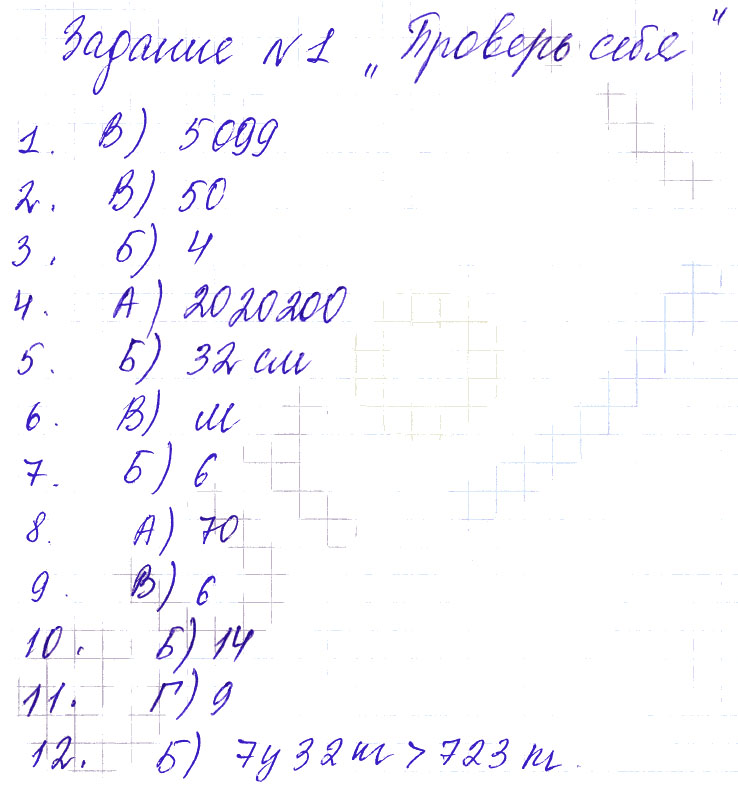 Задание №1 „Проверь себя"
1. В) 5099
2. В) 50
3. Б) 4
4. А) 2020200
5. Б) 32 см
6. В) м
7. Б) 6
8. А) 70
9. В) 6
10. Б) 14
11. Г) 9
12. Б) 7ц 32 кг > 723 кг.